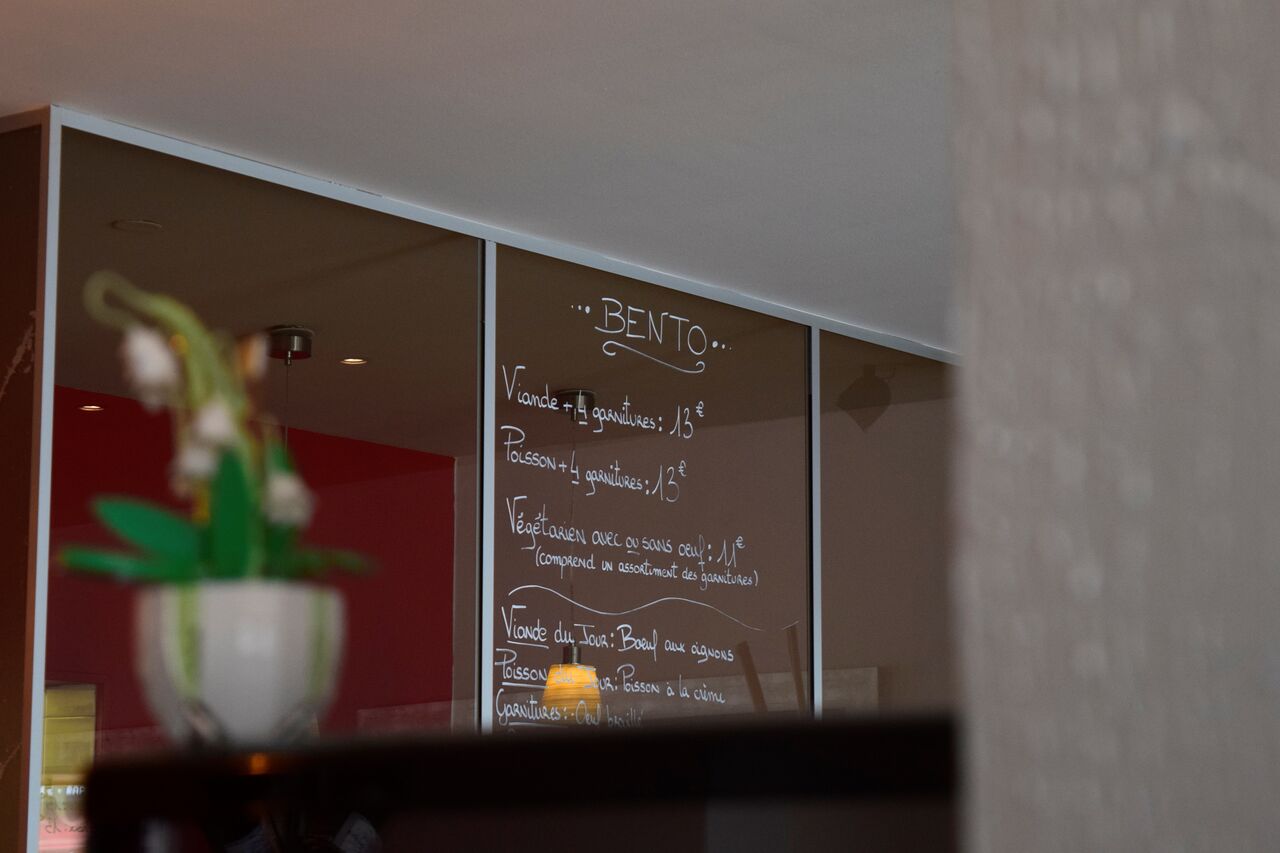 BENTO
Viande + 4 garnitures: 13€
Poisson + 4 garnitures: 13€
Végétarien avec ou sans oeuf: 11€
(comprend un assortiment des garnitures)
Viande du Jour: Boeuf aux oignons
Poisson du Jour: Poisson à la crème
Garnitures: - Oeuf brouillé